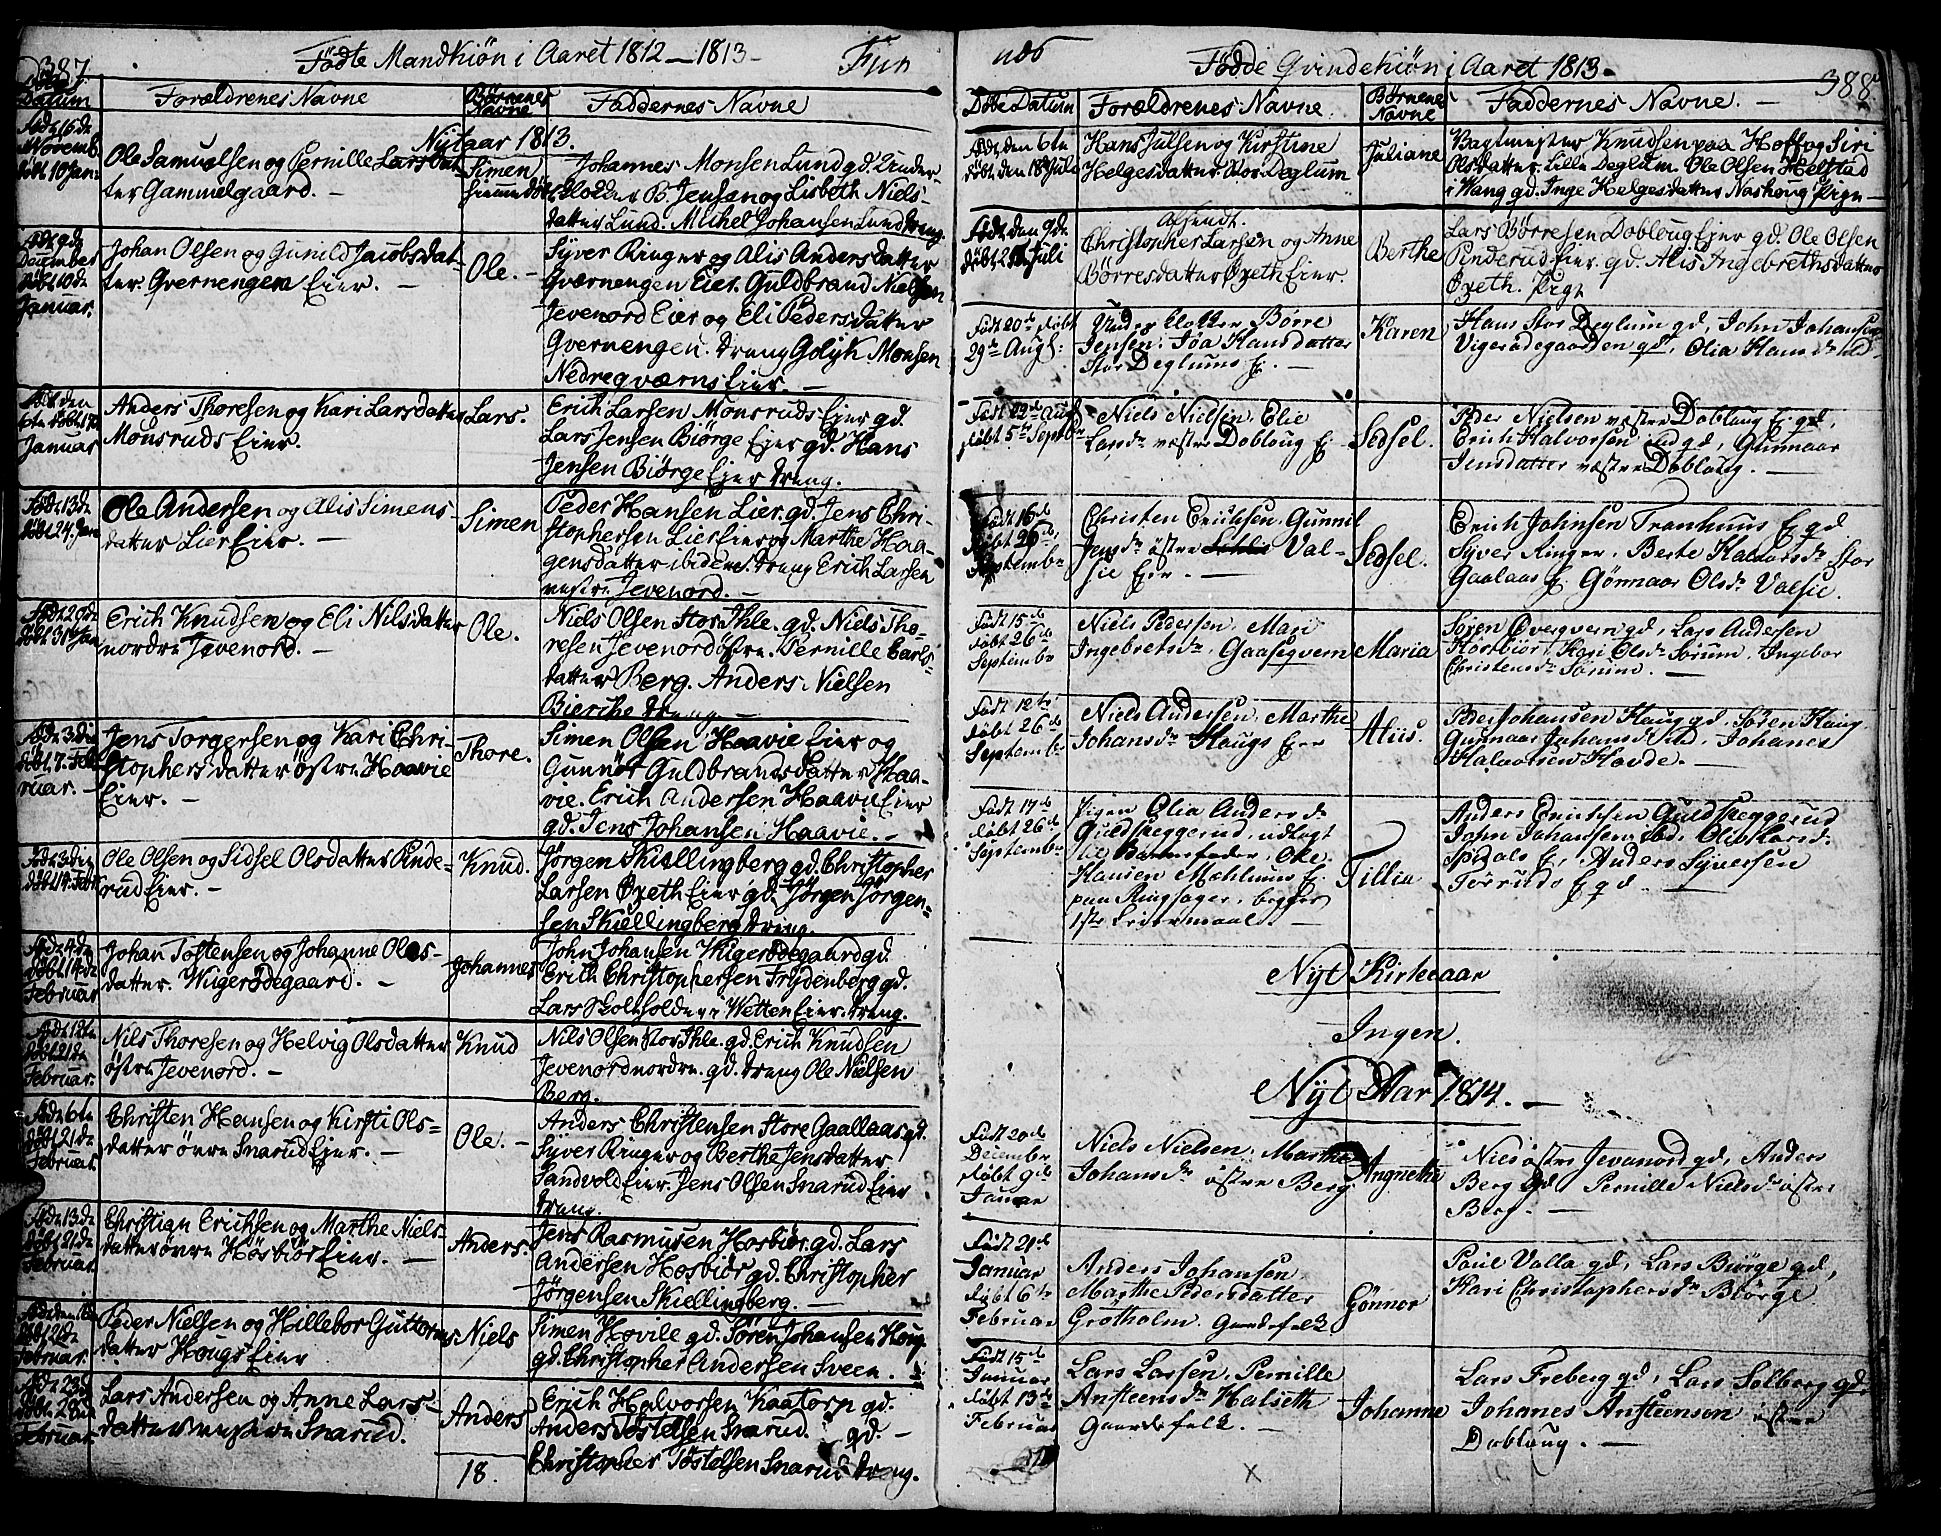 387.
Födte Mandkiön i Aaret 1812 — 1813 —
Fun
Datum
Forældrenes Navne
Börnenes Navne
Faddernes Navne
Nytaar 1813.
Föd: 16de
Novemb.
döbt 10 Jan:
Ole Samuelsen og Pernille Larsdat-
ter Gammelgaard. —
Simen
hiemmedöbt
Johannes Monsen Lund gd. Under-
Klokker B. Jensen og Lisbeth Niels-
datter Lund. Mikel Johansen Lund dreng.
Föd: 9de
December
döbt 10de
Januar.
Johan Olsen og Gunild Jacobsdat-
ter Qvernengen Eier. —
Ole. —
Syver Ringer og Alis Andersdatter
Qværnengen Eier. Guldbrand Nielsen
Jevenord Eier og Eli Pedersdatter
Qvernengen. dreng Golik Monsen
Nedreqværns Eier. —
Föd: den
6te döbt 17de
Januar
Anders Thoresen og Kari Larsdatter
Monsruds Eier.
Lars.
Erich Larsen Monsruds Eier gd.
Lars Jensen Biörge Eier gd. Hans
Jensen Biörge Eier dreng.
Föd: 13de
döbt 24. Jan
Ole Andersen og Alis Simens-
datter Lier Eier. —
Simen
Peder Hansen Lier. gd. Jens Chri-
stophersen Lier Eier og Marthe Haa-
gensdatter ibidem. dreng Erich Larsen
vestre Jevenord. —
Föd: 29de
döbt 31te Jan
Erich Knudsen og Eli Nilsdatter
nordre Jevenord. —
Ole.
Niels Olsen Stor Ihle. gd. Niels Tho-
resen Jevenord östre. Pernille Carls-
datter Berg. Anders Nielsen
Bierche dreng —
Föd: 3die
döbt 7. Feb-
ruar. —
Jens Torgersen og Kari Chri-
stophersdatter östre Haavie
Eier. —
Thore.
Simen Olsen Haavie Eier og
Gunnör Guldbrandsdatter Haa-
vie. Erich Andersen Haavie Eier
gd. Jens Johansen Haavie. —
Föd: 3die
döbt 14. Febr
Ole Olsen og Sidsel Olsdatter Pinde-
rud Eier. —
Knud.
Jörgen Skiellingberg gd. Christopher
Larsen Öxeth Eier gd. Jörgen Jörgen-
sen Skiellingberg dreng.
Föd: 4de
döbt 14de
Februar
Johan Tostensen og Johanne Ols-
datter. Wigerödegaard. —
Johannes
John Johansen Wigerödegaard gd.
Erich Christophersen Frydenberg gd.
Lars Skoleholder i Wetten Eier. dreng.
Föd: 12te
döbt 21de
Februar.
Nils Thoresen og Helvig Olsdatter
östre Jevenord. —
Knud
Nils Olsen Stor Ihle. gd. Erich Knudsen
Jevenord nordre. gd. dreng Ole Nielsen
Berg.
Föd: 6te
döbt 21de
Februar.
Christen Hansen og Kirsti Ols-
datter övre Snarud Eier. —
Ole. —
Anders Christensen Store Gaallaas gd.
Syver Ringer og Berthe Jensdatter
Sandvold Eier. Jens Olsen Snarud Eier
dreng.
Föd: 13de
döbt 21de
Februar.
Christian Erichsen og Marthe Niels-
datter övre Hösbiör Eier. —
Anders.
Jens Rasmusen Hosbiör. gd. Lars
Andersen Hosbiör gd. Christopher
Jörgensen Skiellingberg. —
Peder Nielsen og Hillebor Guttorms-
datter Hougs Eier
Niels
Simen Hovile gd. Sören Johansen Houg.
gd. Christopher Andersen Sveen. —
Föd: 23de
döbt 28de
Februar.
Lars Andersen og Anne Lars-
datter vestre Snarud.
Anders
Erich Halvorsen Kaatorp gd.
Anders Tostelsen Snarud. gd. —
Christopher Töstelsen Snarud dreng.
18.
ndes
Födde Qvindekiön i Aaret 1813 —
388
Döbe Datum
Forældrenes Navne.
Börnenes Navne
Faddernes Navne. —
Föd: den 6te
döbt den 18 Juli
Hans Julsen og Kirstine
Helgesdatter Stor Deglum
Juliane
Vagtmester Knudsen paa Hoff og Siri
Olsdatter Lille Deglum. Ole Olsen Helstad
i Wang gd. Inge Helgesdatter Naskong Pige —
Föd: den 9de
döbt 25 Juli
Afsendt.
Christopher Larsen og Anne
Börresdatter Öxeth Eier.
Berthe
Lars Börresen Dobloug Eier gd. Ole Olsen
Pinderud Eier. gd. Alis Ingebrethsdatter
Öxeth. Pige
Födt 20de döbt
29de Aug:
Under Klokker Börre
Jensen. Joa Hansdatter
Stor Deglums E. —
Karen
Hans Stor Deglum gd, John Johansen
Vigerödegaarden gd, Olia Hansdr ibid —
Födt 22de Aug
döbt 5te Septbr
Niels Nielsen, Elie
Larsdr væstre Dobloug E —
Sedsel.
Peder Nielsen væstre Dobloug E gd,
Erich Halvorsen ibid gd, Gunnaar
Jensdatter væstre Doblaug. —
Födt 16de
döbt 26de
Septembr
Christen Erichsen. Gunnil
Jensdr östre Val-
sie Eier. —
Sedsel.
Erich Johnsen Tranhuus E gd
Syver Ringer, Berte Halvorsdr Stor
Gaalaas E, Gönnaar Olsdr Valsie.
Födt 15de
döbt 26de
Septembr
Niels Pedersen, Mari
Ingebretsdr, Gaaseqvern
Maria
Sören Övergvern gd, Lars Andersen
Hosbiör, Kari Olsdr Sörum, Ingebor
Christensdr Sörum. —
Födt 12te
döbt 26de
Septembr
Niels Andersen, Marthe
Johansdr Haugs Eier
Aliis.
Peder Johansen Haug gd, Sören Haug
Gunnaar Johansdr ibid, Johanes
Halvorsen Hovde. —
Födt 17de
döbt 26de
Septembr
Pigen Olia Andersdr
Guldskeggerud, udlagt
til Barnefader, Ole
Hansen Mæhlums E.
paa Ringsager, begges
1ste Leiermaal. —
Tillia
Anders Erichsen Guldskeggerud
John Johansen ibid, Olia Larsdr
Spidals E, Anders Syversen
Torruds E gd. —
Nyt Kirkeaar
Ingen.
Nyt Aar 1814. —
Födt 20de
Decembr
döbt 9de
Januar
Niels Nielsen, Marthe
Johansdr östre Berg
Angnethe
Niels östre Jevanord gd, Anders
Berg gd, Pernille Nielsdr östre
Berg. —
Födt 21de
Januar
döbt 6te
Februar
Anders Johansen
Marthe Pedersdatter
Grötholm. Gaardefolk
Gönnor
Paul Valla gd, Lars Biörge gd,
Kari Christophersdr Biörge
Födt 15de
Januar
döbt 13de
Februar
Lars Larsen, Pernille
Anstensdr Halseth
Gaardefolk. —
Johanne
Lars Freberg gd, Lars Solberg gd,
Johanes Ansteensen östre
Doblaug. —
X